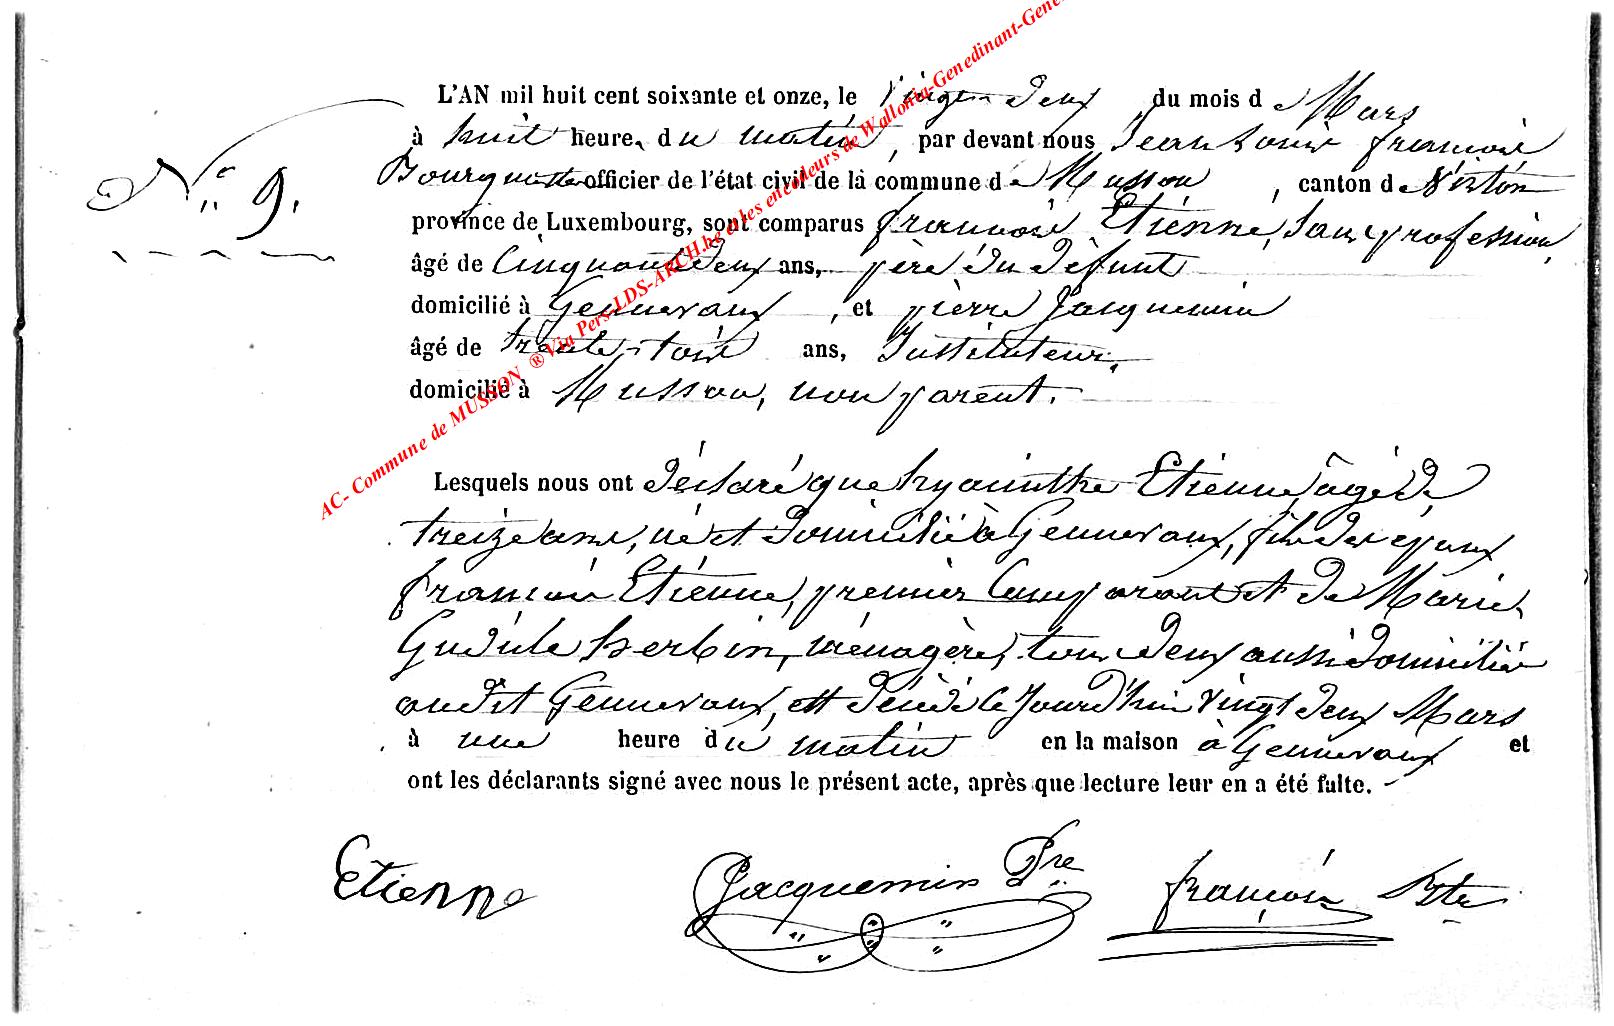 L'AN mil huit cent soixante et onze, le Vingt deux du mois de Mars
à huit heures du matin, par devant nous Jean Louis françois
Bourgmestre officier de l'état civil de la commune de Musson, canton de Virton
N.° 9.
province de Luxembourg, sont comparus françois Etienne, Sans profession,
âgé de Cinquante deux ans, père du défunt
domicilié à Gennevaux, et pierre Jacquemin
âgé de trente-trois ans, Instituteur,
domicilié à Musson, non parent.
Lesquels nous ont déclaré que hyacinthe Etienne, âgé de
treize ans, né et domicilié à Gennevaux, fils des époux
françois Etienne, premier Comparant et de Marie
Gudule herbin, ménagère, tous deux aussi domiciliés
audit Gennevaux, est décédé ce jourd'hui vingt deux Mars
à une heure du matin en la maison à Gennevaux et
ont les déclarants signé avec nous le présent acte, après que lecture leur en a été faite.
Etienne Jacquemin Pre françois Btr
AC- Commune de MUSSON ® Via Pers-LDS-ARCH.be et les encodeurs de Wallonia-Genedinant-Gene